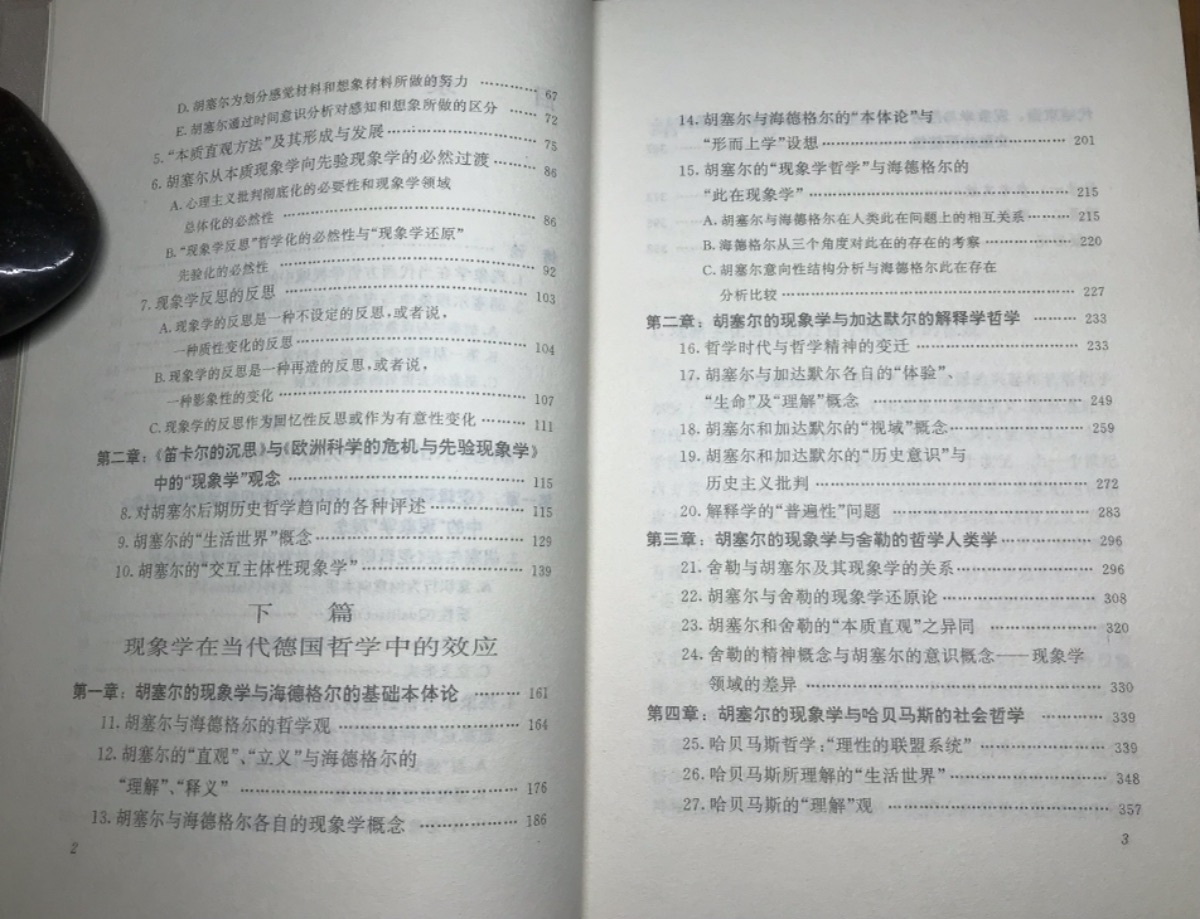 D. 胡塞尔为划分感觉材料和想象材料所做的努力 ………… 67
E. 胡塞尔通过时间意识分析对感知和想象所做的区分 …… 72
5. “本质直观方法”及其形成与发展 ……………………… 75
6. 胡塞尔从本质现象学向先验现象学的必然过渡 ……… 86
A. 心理主义批判彻底化的必要性和现象学领域
总体化的必然性 ……………………………………… 86
B. “现象学反思”哲学化的必然性与“现象学还原”
先验化的必然性 ……………………………………… 92
7. 现象学反思的反思 …………………………………… 103
A. 现象学的反思是一种不设定的反思,或者说,
一种质性变化的反思 ………………………………… 104
B. 现象学的反思是一种再造的反思,或者说,
一种影象性的变化 …………………………………… 107
C. 现象学的反思作为回忆性反思或作为有意性变化 ……… 111
第二章:《笛卡尔的沉思》与《欧洲科学的危机与先验现象学》
中的“现象学”观念 ………………………………… 115
8. 对胡塞尔后期历史哲学趋向的各种评述 …………… 115
9. 胡塞尔的“生活世界”概念 ………………………… 129
10. 胡塞尔的“交互主体性现象学” …………………… 139
下 篇
现象学在当代德国哲学中的效应
第一章: 胡塞尔的现象学与海德格尔的基础本体论 ……… 161
11. 胡塞尔与海德格尔的哲学观 ……………………… 164
12. 胡塞尔的“直观”、“立义”与海德格尔的
“理解”、“释义” …………………………………… 176
13. 胡塞尔与海德格尔各自的现象学概念 …………… 186
2
14. 胡塞尔与海德格尔的“本体论”与
“形而上学”设想 …………………………………… 201
15. 胡塞尔的“现象学哲学”与海德格尔的
“此在现象学” ……………………………………… 215
A. 胡塞尔与海德格尔在人类此在问题上的相互关系 ……… 215
B. 海德格尔从三个角度对此在的存在的考察 …………… 220
C. 胡塞尔意向性结构分析与海德格尔此在存在
分析比较 ……………………………………………… 227
第二章: 胡塞尔的现象学与加达默尔的解释学哲学 ……… 233
16. 哲学时代与哲学精神的变迁 ……………………… 233
17. 胡塞尔与加达默尔各自的“体验”、
“生命”及“理解”概念 ……………………………… 249
18. 胡塞尔和加达默尔的“视域”概念 ………………… 259
19. 胡塞尔和加达默尔的“历史意识”与
历史主义批判 ………………………………………… 272
20. 解释学的“普遍性”问题 …………………………… 283
第三章: 胡塞尔的现象学与舍勒的哲学人类学 ………… 296
21. 舍勒与胡塞尔及其现象学的关系 ………………… 296
22. 胡塞尔与舍勒的现象学还原论 …………………… 308
23. 胡塞尔和舍勒的“本质直观”之异同 ……………… 320
24. 舍勒的精神概念与胡塞尔的意识概念——现象学
领域的差异 …………………………………………… 330
第四章: 胡塞尔的现象学与哈贝马斯的社会哲学 ……… 339
25. 哈贝马斯哲学:“理性的联盟系统” ……………… 339
26. 哈贝马斯所理解的“生活世界” …………………… 348
27. 哈贝马斯的“理解”观 ……………………………… 357
3